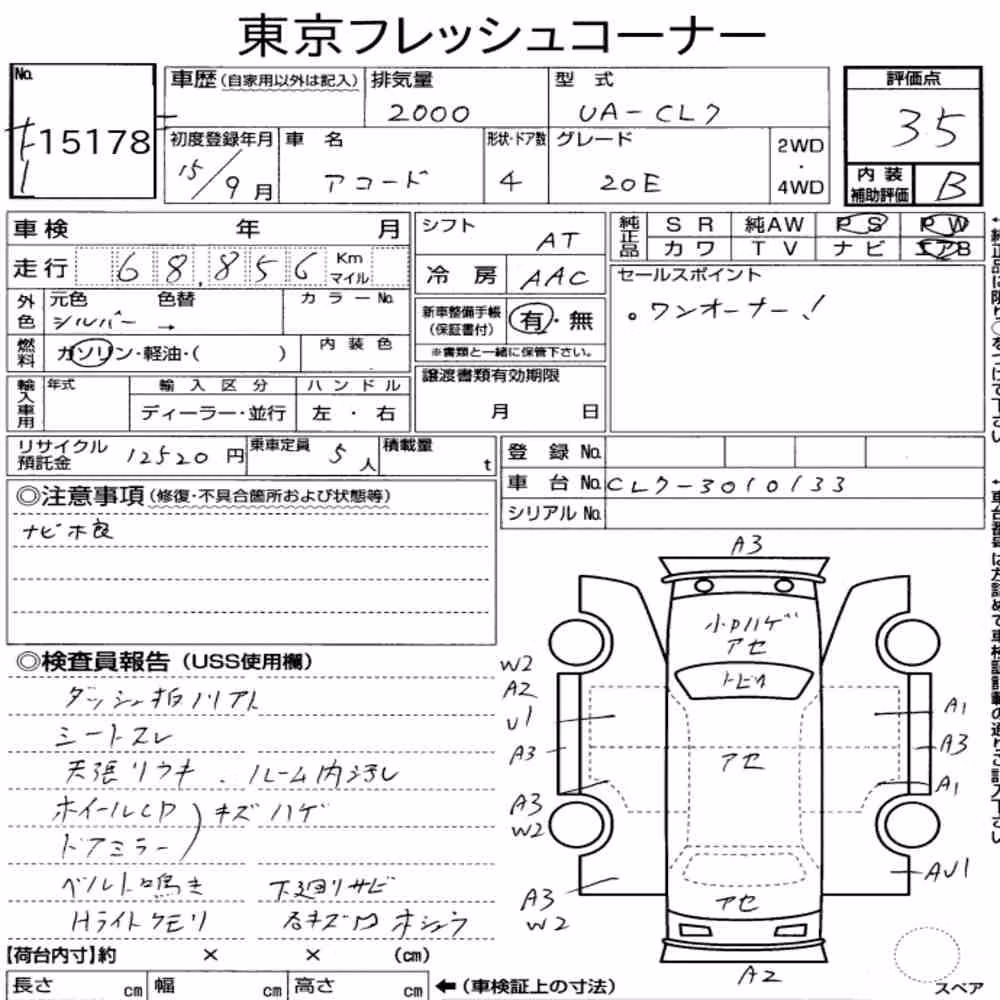 東京フレッシュコーナー
No. 15178
車歴(自家用以外は記入)
排気量 2000
型式 UA-CL7
評価点 3.5
初度登録年月 15/9月
車名 アコード
形状・ドア数 4
グレード 20E
2WD・4WD
内装補助評価 B
車検 年 月
走行 68,856 Km マイル
外色 元色 シルバー → 色替 カラーNo.
燃料 ガソリン・軽油・( )
内装色
輸入車用 年式 輸入区分 ハンドル
ディーラー・並行 左・右
シフト AT
冷房 AAC
新車整備手帳(保証書付) 有・無
※書類と一緒に保管下さい。
譲渡書類有効期限
月 日
純正品 SR 純AW PS PW
カワ TV ナビ エアB
セールスポイント
。ワンオーナー!
リサイクル預託金 12520円
乗車定員 5人
積載量 t
登録No.
車台No. CL7-3010133
シリアルNo.
◎注意事項(修復・不具合箇所および状態等)
ナビ不良
◎検査員報告(USS使用欄)
シートスレ
天張リウキ、ルーム内汚レ
ホイールCP キズ ハゲ
ドアミラー
ベルト鳴き 下廻リサビ
Hライトクモリ
【荷台内寸】約 × × (cm)
長さ cm 幅 cm 高さ cm
←(車検証上の寸法)
A3
小Pハゲ
アセ
トビカ
アセ
アセ
A2
W2
A2
U1
A3
A3
W2
A3
W2
A1
A3
A1
AU1
スペア